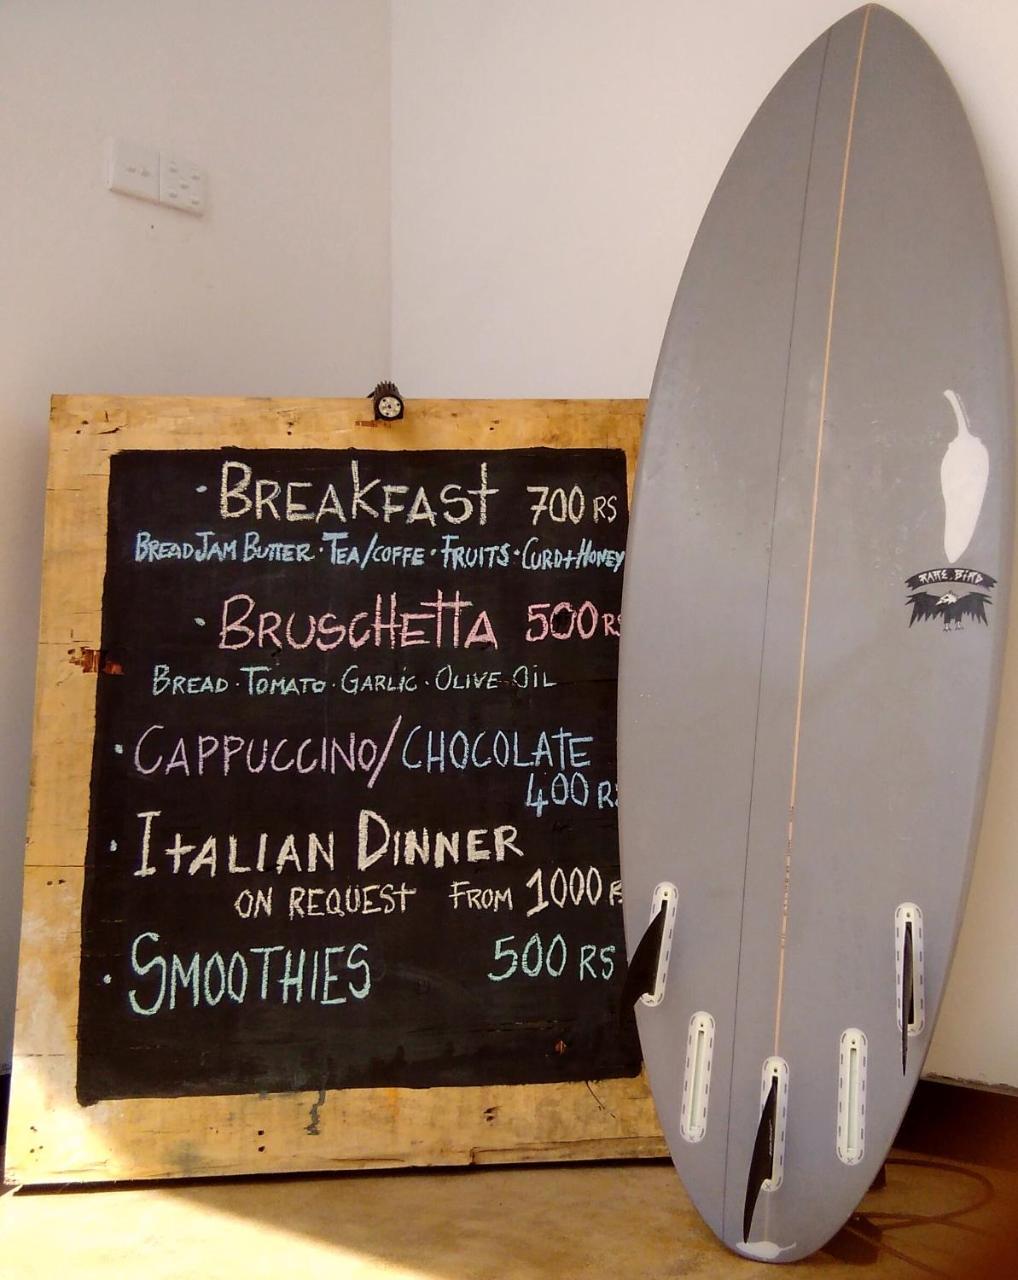 · BREAKFAST 700 RS
BREAD JAM BUTTER · TEA/COFFE · FRUITS · CURD+HONEY
· BRUSCHETTA 500 RS
BREAD · TOMATO · GARLIC · OLIVE OIL
· CAPPUCCINO/CHOCOLATE
400 RS
· ITALIAN DINNER
ON REQUEST FROM 1000
· SMOOTHIES 500 RS
RARE BIRD